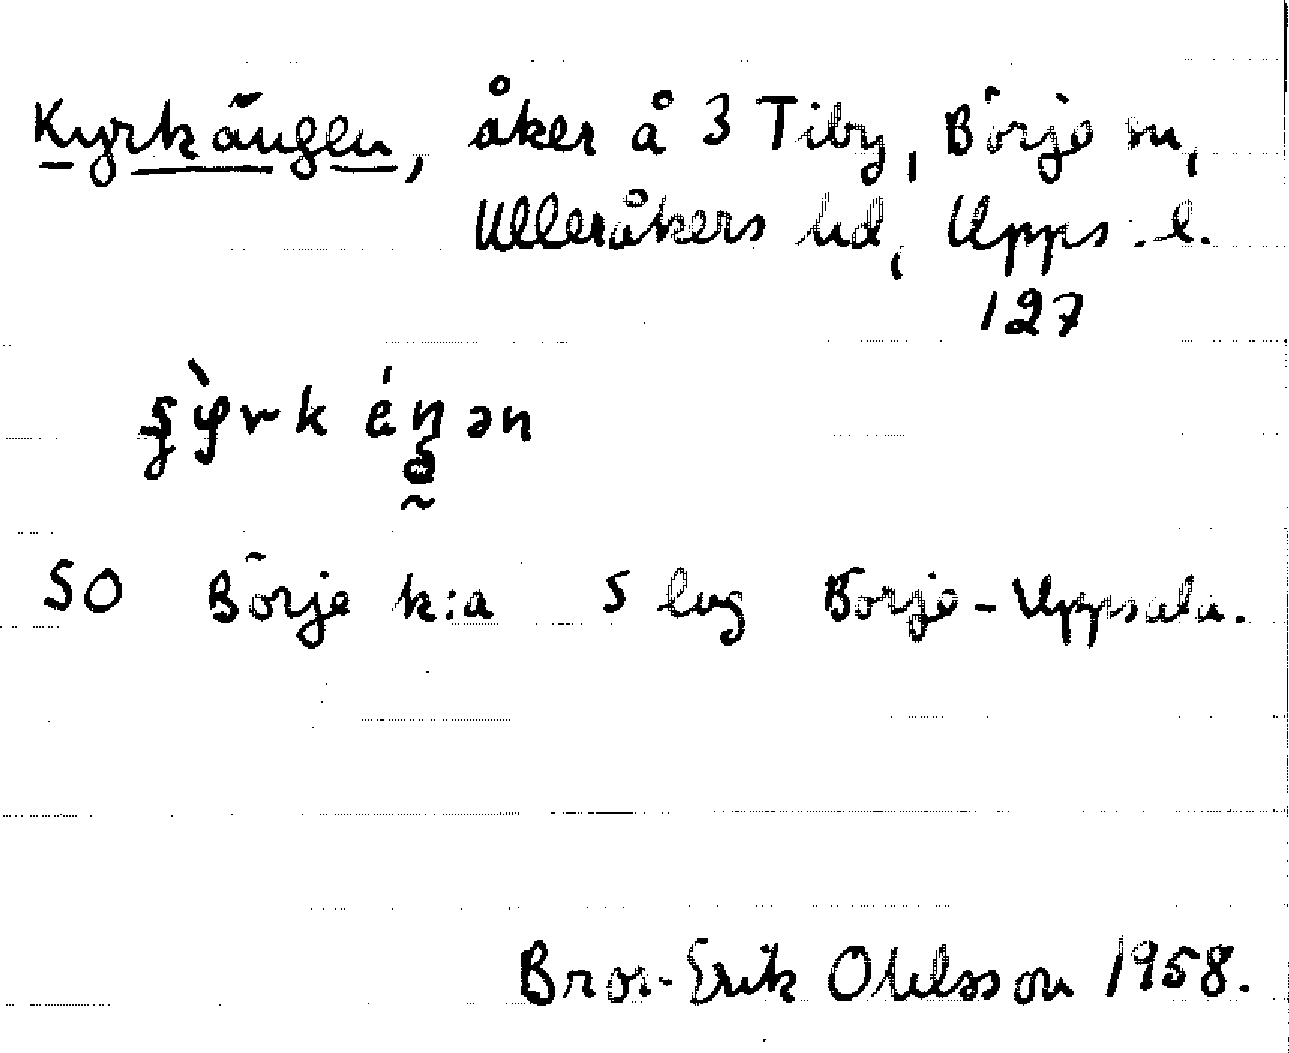 Kyrkängen, åker å 3 Tiby, Börje sn,
Ulleråkers hd, Upps. l.
127
SO Börje k:a S lvg Börje-Uppsala.
Bror-Erik Ohlsson 1958.